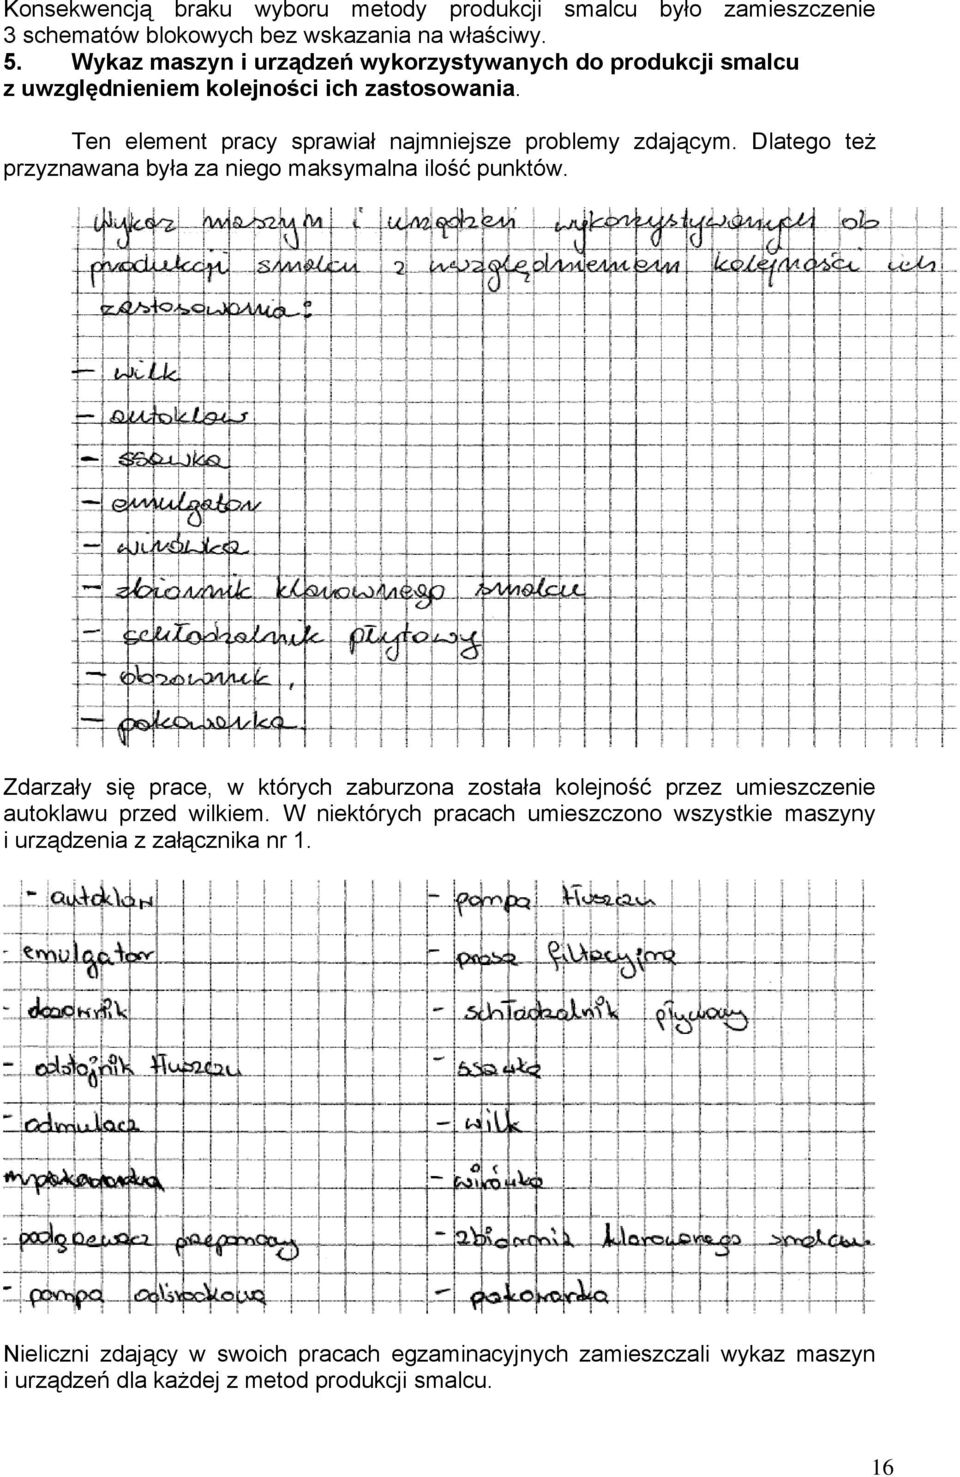 Konsekwencją braku wyboru metody produkcji smalcu było zamieszczenie
3 schematów blokowych bez wskazania na właściwy.
5. Wykaz maszyn i urządzeń wykorzystywanych do produkcji smalcu
z uwzględnieniem kolejności ich zastosowania.
Ten element pracy sprawiał najmniejsze problemy zdającym. Dlatego też
przyznawana była za niego maksymalna ilość punktów.
Wykaz maszyn i urządzeń wykorzystywanych do
produkcji smalcu z uwzględnieniem kolejności ich
zastosowania:
- wilk
- autoklaw
- ssawka
- emulgator
- wirówka
- zbiornik klarownego smalcu
- schłodzalnik płytowy
- dozownik,
- pakowarka.
Zdarzały się prace, w których zaburzona została kolejność przez umieszczenie
autoklawu przed wilkiem. W niektórych pracach umieszczono wszystkie maszyny
i urządzenia z załącznika nr 1.
- autoklaw
- emulgator
- dozownik
- odstojnik tłuszczu
- odmulacz
pakowarka
- podgrzewacz przeponowy
- pompa odśrodkowa
- pompa tłuszczu
- prasa filtracyjna
- schładzalnik płytowy
- ssawka
- wilk
- wirówka
- zbiornik klarowanego smalcu.
- pakowarka
Nieliczni zdający w swoich pracach egzaminacyjnych zamieszczali wykaz maszyn
i urządzeń dla każdej z metod produkcji smalcu.
16